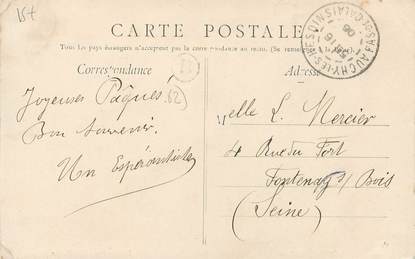 15t
CARTE POSTALE
Tous les pays étrangers n'acceptent pas la correspondance au recto. (Se renseigner
Correspondance
Adresse
AUCHY-LES-HESDIN
PAS-DE-CALAIS
62
Joyeuses Pâques!
Bon souvenir.
Un Espérantiste
Melle L. Mercier
4 Rue du Fort
Fontenay s/ Bois
(Seine)